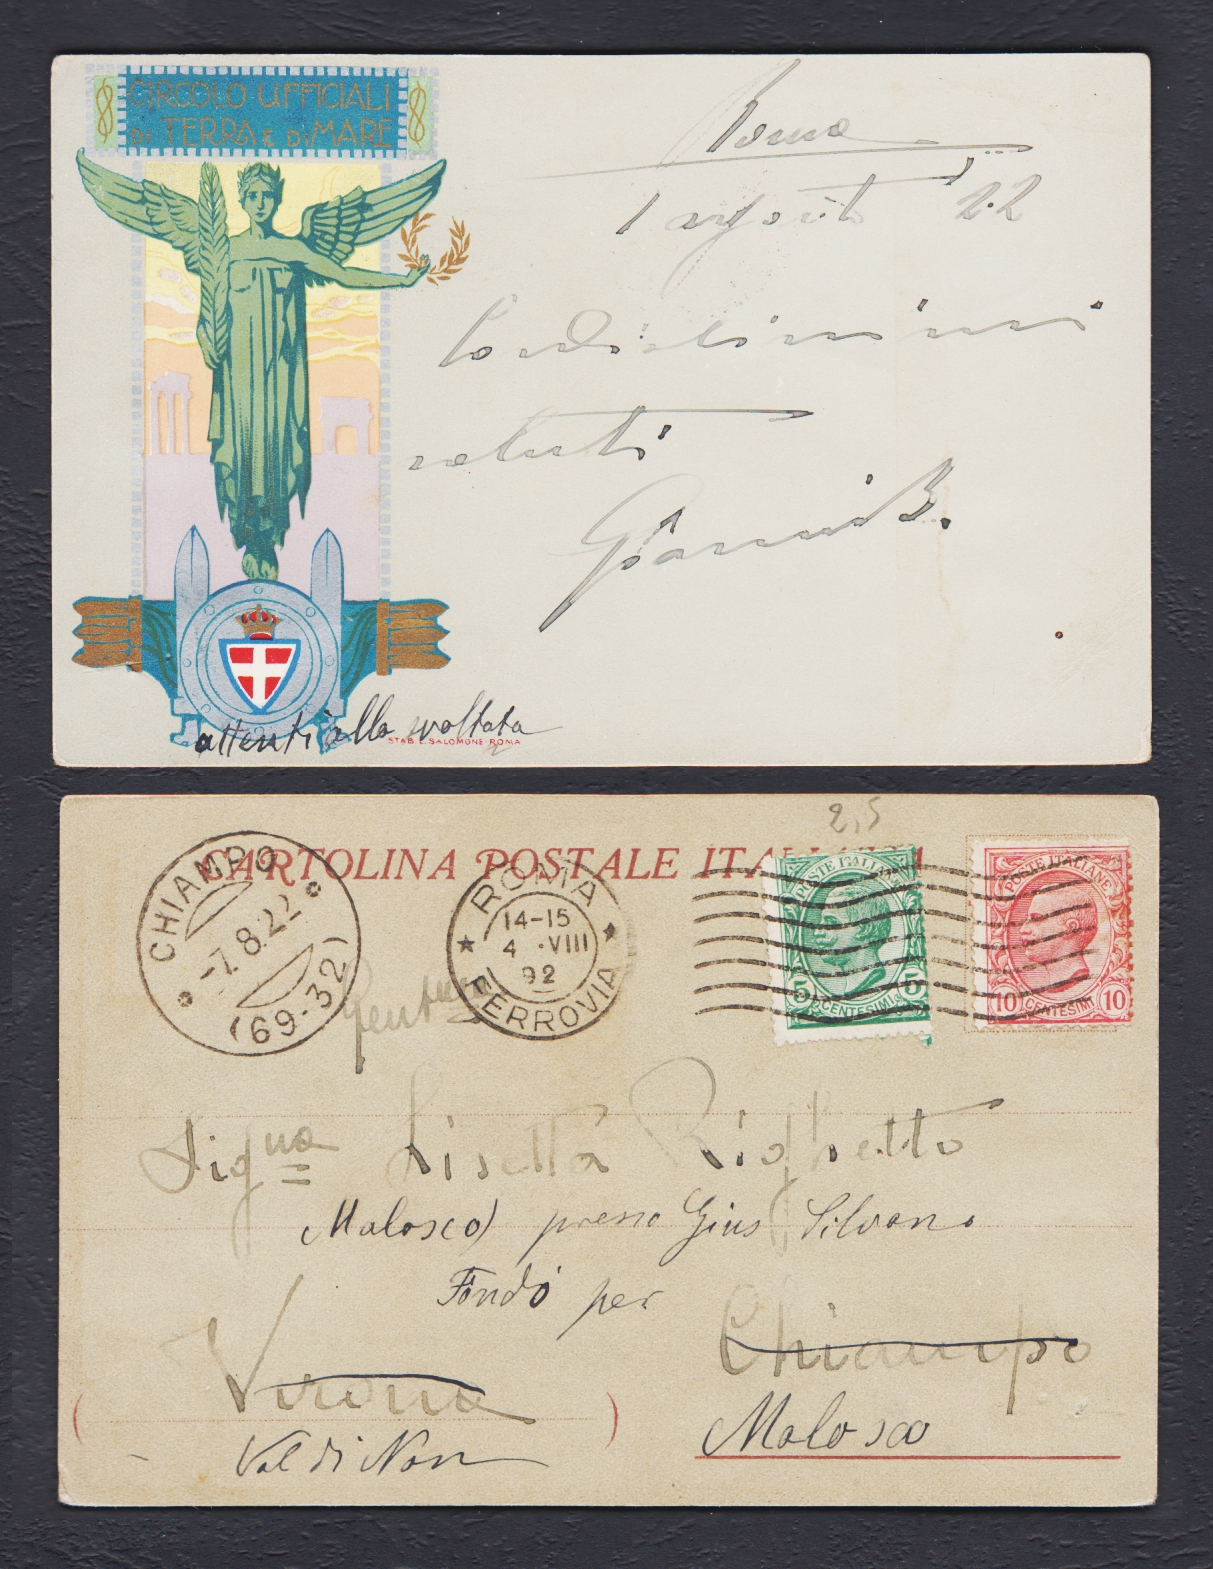 CIRCOLO UFFICIALI
DI TERRA E DI MARE
Roma
1 agosto '22
Cordialissimi
saluti
Gianni B.
attenti alla voltata
STAB. L. SALOMONE-ROMA
2,5
CARTOLINA POSTALE ITALIANA
CHIAMPO
-7.8.22
(69-32)
ROMA
14-15
4 ·VIII
92
FERROVIA
POSTE ITALIANE
5 CENTESIMI 5
POSTE ITALIANE
10 CENTESIMI 10
Signa Lisetta Righetto
Malosco) presso Gius Silvano
Fondo per
Chiampo
Verona
Malosco
Val di Non